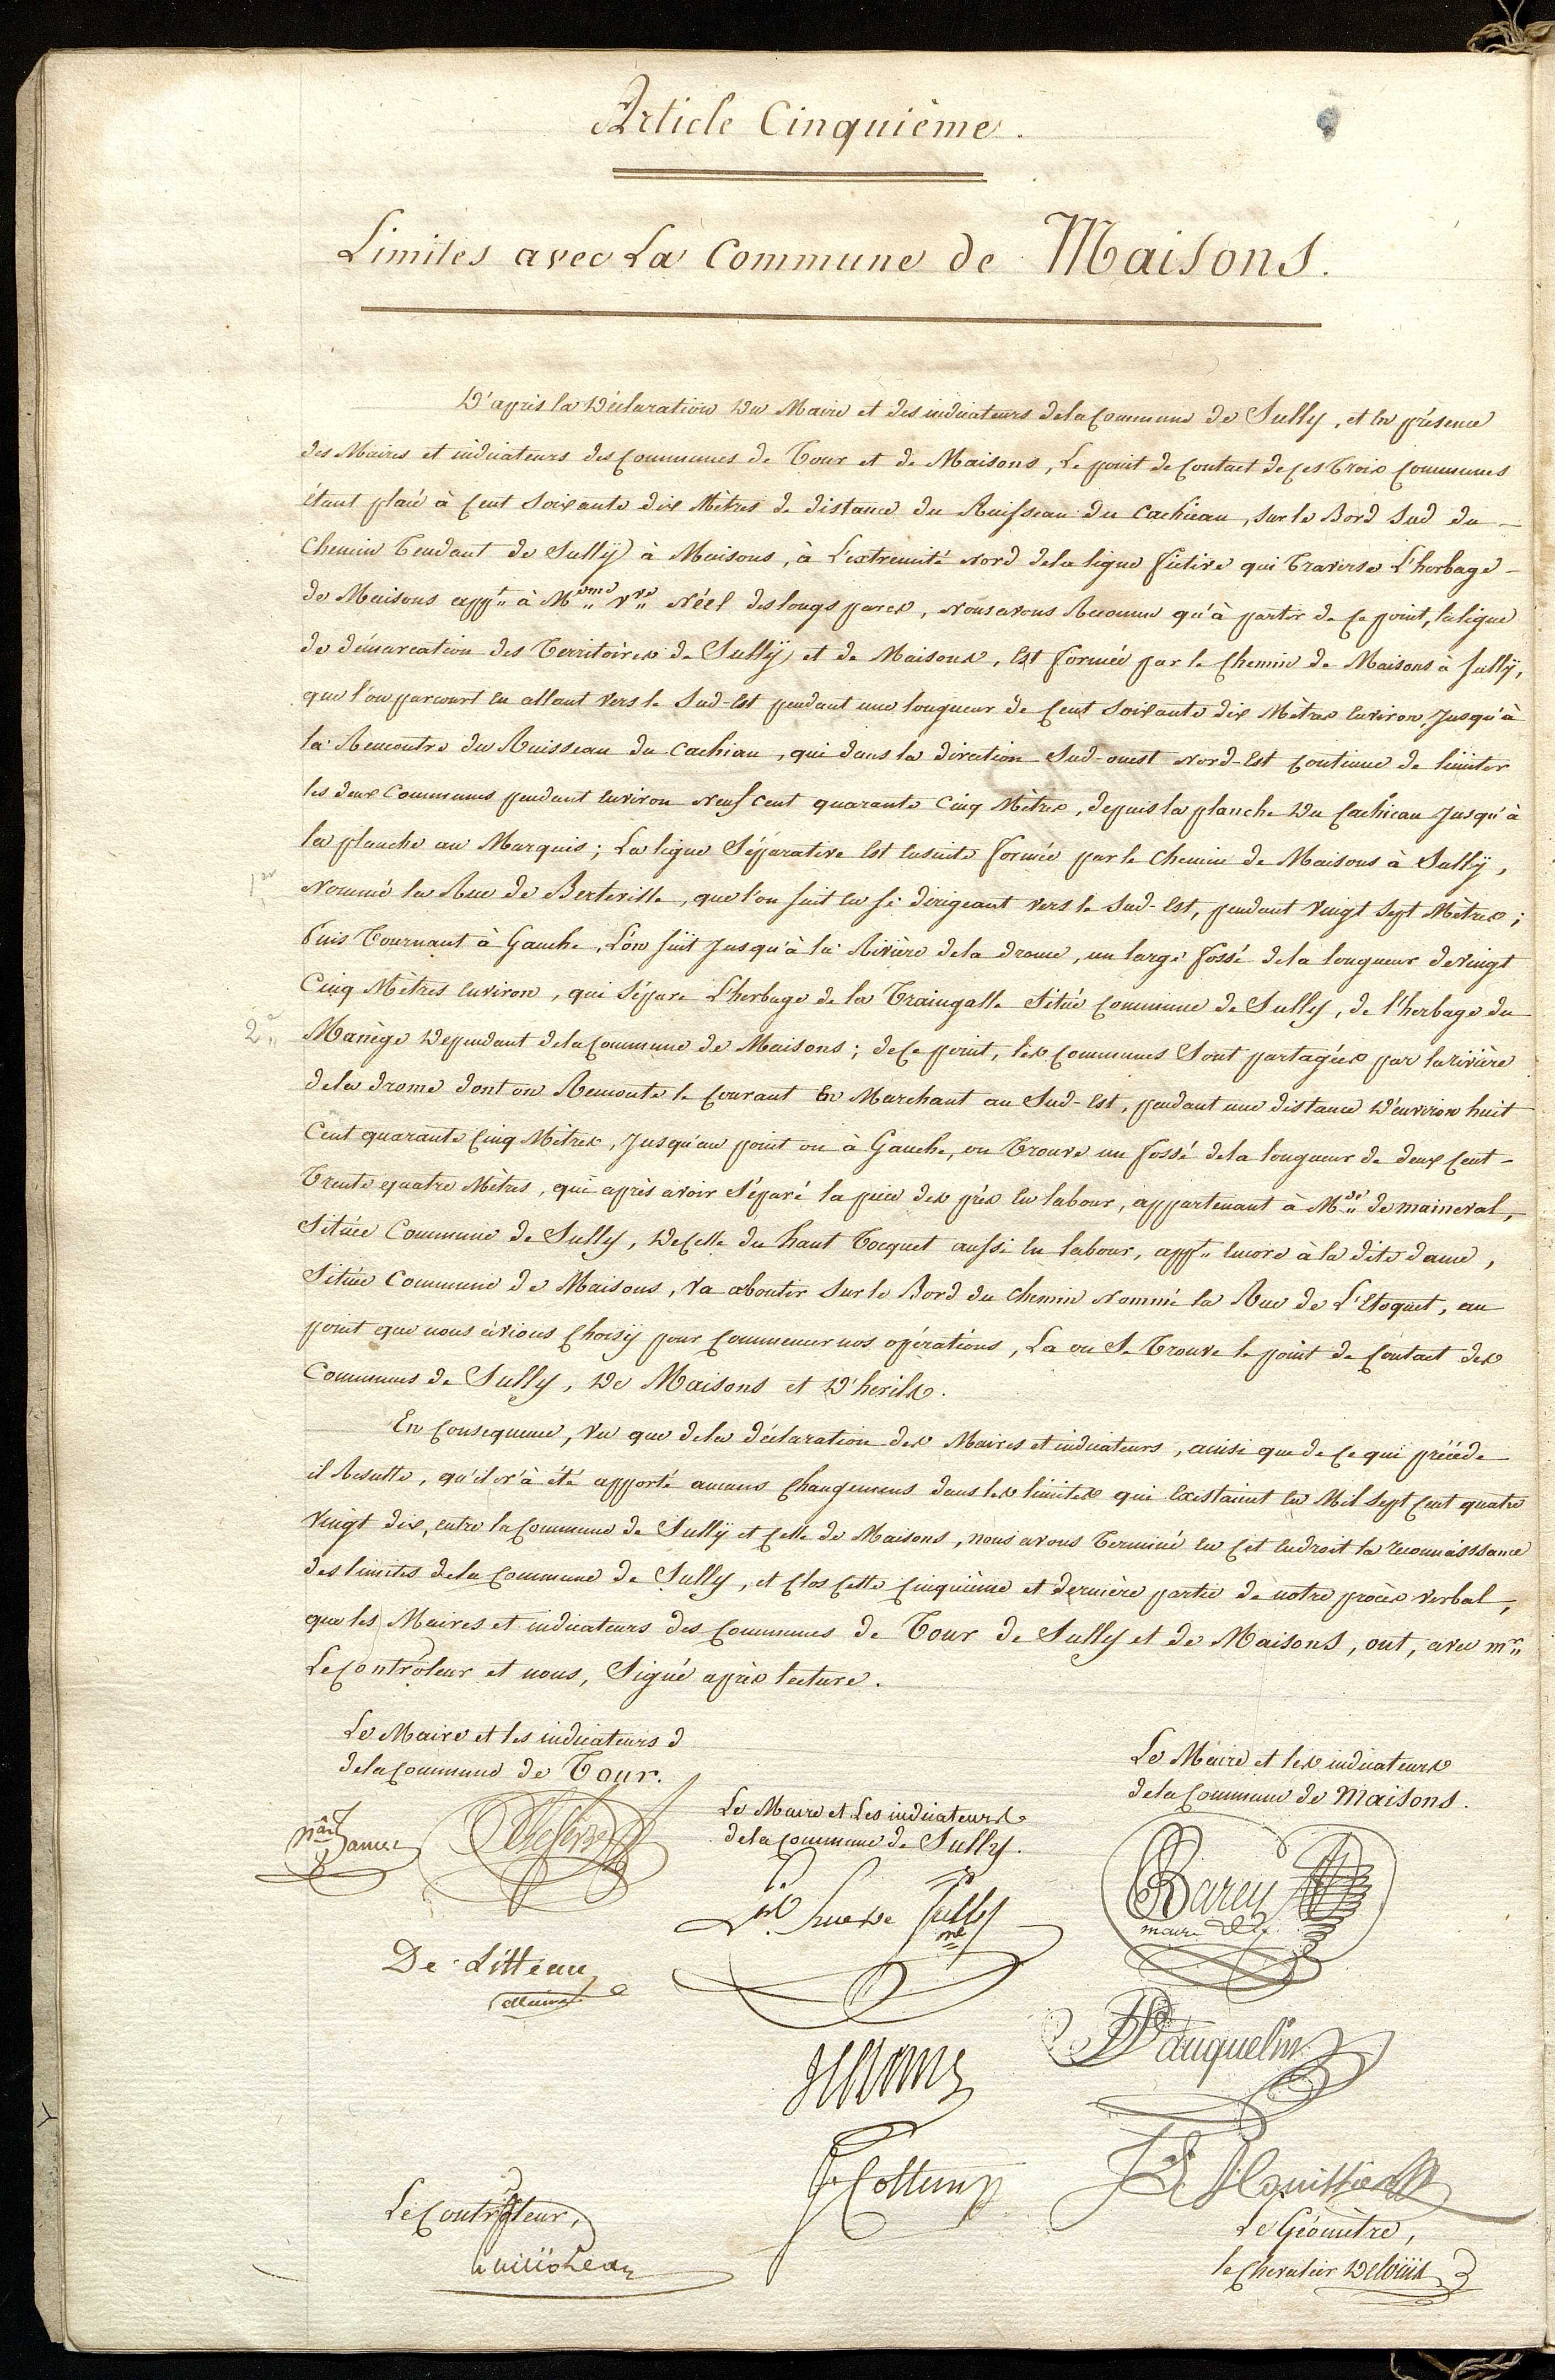 Article Cinquième.
Limites avec La Commune de Maisons.
D'après la Déclaration Du Maire et des indicateurs dela Commune de Sully, et En présence
des Maires et indicateurs des Communes de Tour et de Maisons, Le point de Contact de Ces Trois Communes
étant placé à Cent Soixante dix Mètres de distance du Ruisseau du Cachieau, sur le Bord Sud du
Chemin Tendant de Sullÿ à Maisons, à L'extremité Nord dela ligne fictive qui Traverse L'herbage
de Maisons appt. à Mme vve Néel des longs parcs, Nous avons Reconnu qu'à partir de Ce point, la ligne
de démarcation des Territoires de Sullÿ et de Maisons, Est formée par le Chemin de Maisons à Sullÿ,
que l'on parcourt En allant Vers le Sud-Est pendant une longueur de Cent Soixante dix Mètres Environ, Jusqu'à
la Rencontre du Ruisseau du Cachiau, qui dans la direction Sud-ouest Nord-Est Continue de limiter
les deux Communes pendant Environ Neuf Cent quarante Cinq Mètres, depuis la planche Du Cachieau Jusqu'à
la planche au Marquis ; La ligne Séparative Est Ensuite formée par le Chemin de Maisons à Sullÿ,
1er
Nommé la Rue de Berteville, que l'on suit En se dirigeant Vers le Sud-Est, pendant Vingt Sept Mètres ;
Puis Tournant à Gauche, L'on suit Jusqu'à la Rivière dela drome, un large fossé dela longueur de Vingt
Cinq Mètres Environ, qui Sépare L'herbage de la Traingalle Située Commune de Sully, de l'herbage du
2e
Manège Dependant dela Commune de Maisons ; de Ce point, les Communes Sont partagées par la rivière
dela drome dont on Remonte le Courant En Marchant au Sud-Est, pendant une distance D'environ huit
Cent quarante Cinq Mètres, Jusqu'au point ou à Gauche, on Trouve un fossé dela longueur de deux Cent-
Trente quatre Mètres, qui après avoir Séparé la pièce des prés En labour, appartenant à Mde de maineval,
Située Commune de Sully, De Celle du haut Tocquet aussi En labour, appt. Encore à la dite dame,
Située Commune de Maisons, Va aboutir Sur le Bord du Chemin Nommé la Rue de L'Etoquet, au
point que nous avions Choisÿ pour Commencer nos opérations, La ou Se Trouve le point de Contact des
Communes de Sully, De Maisons et D'herils.
En Consequence, Vu que dela déclaration des Maires et indicateurs, ainsi que de Ce qui précède
il Resulte, qu'il n'à été apporté aucuns Changemens dans les limites qui Existaient En Mil Sept Cent quatre
Vingt dix, entre la Commune de Sullÿ et Celle de Maisons, nous avons Terminé En Cet Endroit la reconnaisssance
des limites dela Commune de Sully, et Clos Cette Cinquième et dernière partie de notre procès verbal,
que les Maires et indicateurs des Communes de Tour de Sully et de Maisons, ont, avec mr.
Le Contrôleur et nous, Signé après lecture.
Le Maire et les indicateurs d
dela Commune de Tour.
Le Maire et les indicateurs
dela Commune de Maisons.
Le Maire et Les indicateurs
dela Commune de Sully.
De Litteau
maire
Sully
Barey
maire
Vauquelin
Le Contrôleur,
Le Géomètre,
le Chevalier Delouis